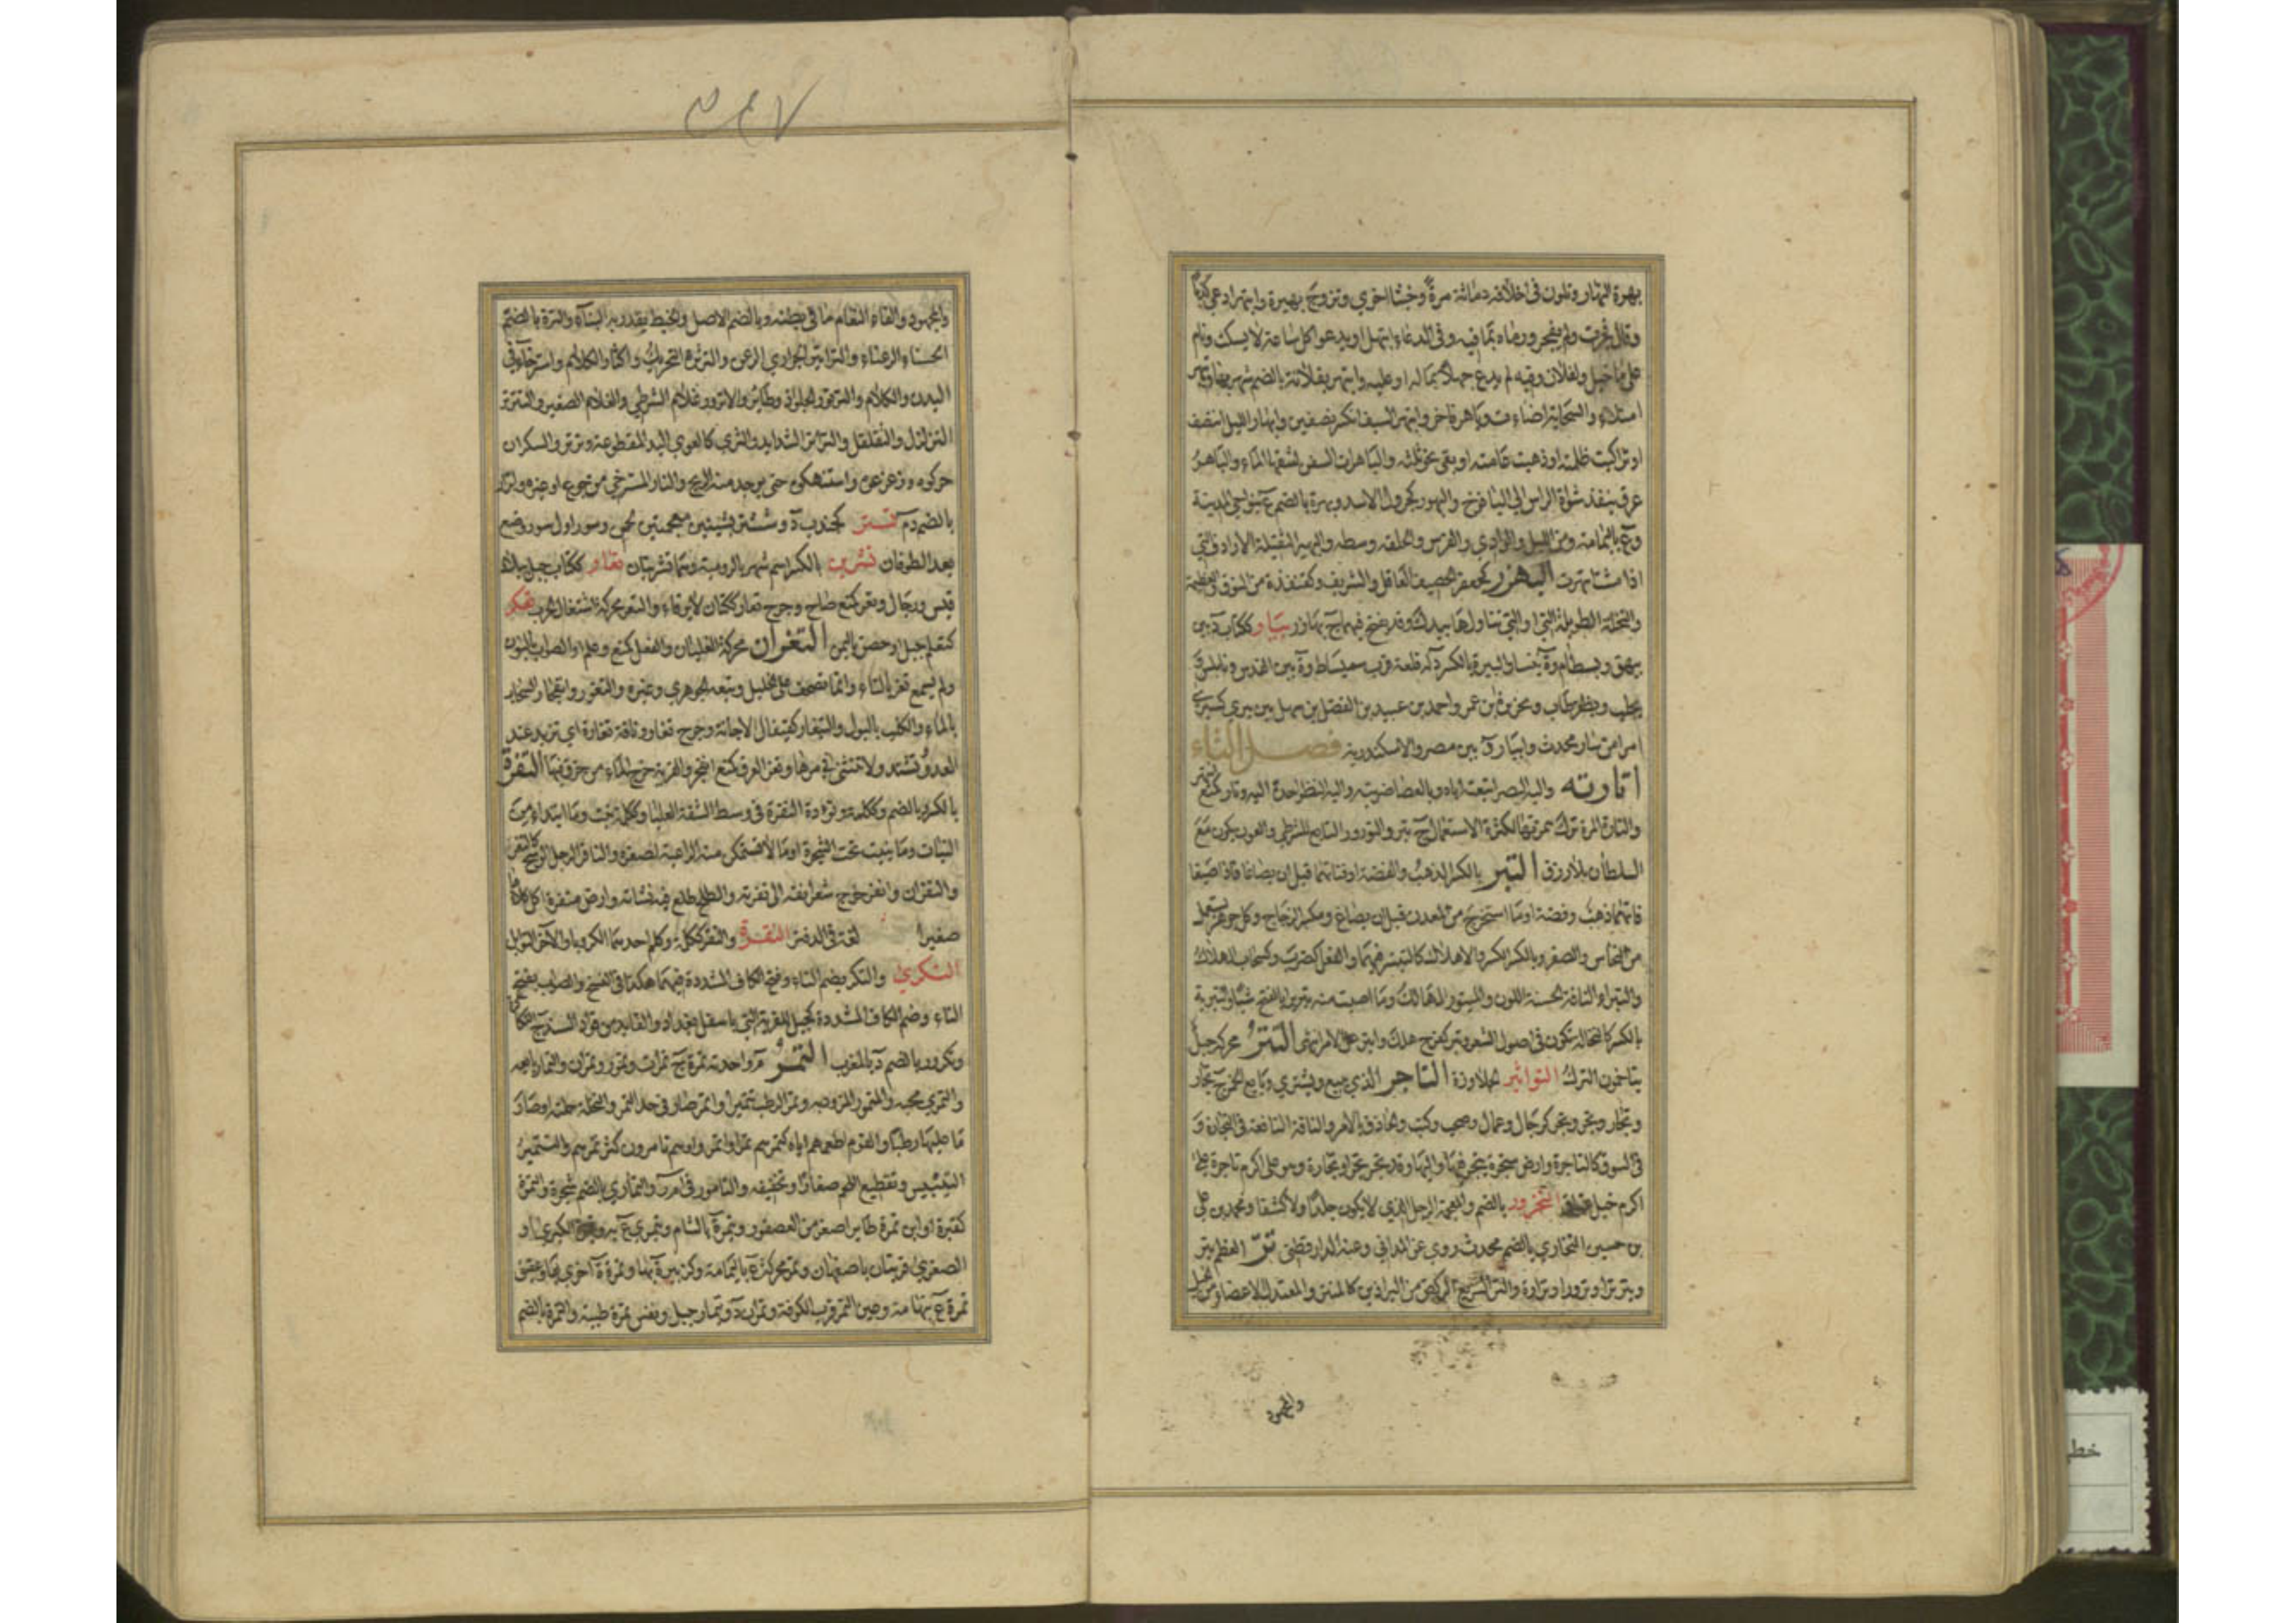 بهرة النهار وتلون في اخلاقه دماثة مرة وخبثا اخرى وتزوج بهيرة وابتهر ادعى كذبا
وقال فجرت ولم يفجر ورماه بما فيه وفي الدعاء ابتهل او يدعو كل ساعة لا يسكت ونام
على ما خيل ولفلان وفيه لم يدع جهدا مما له او عليه وابتهر بفلانة بالضم شهر بها وتبهر
امتلاء والسحابة اضاءت وباهر فاخر وانبهر السيف انكسر نصفين وابهار الليل انتصف
او تراكبت ظلمته او ذهبت عامته او بقي نحو ثلثه والباهرات السفن لشقها الماء والباهر
عرق ينفذ شواة الراس الى اليافوخ والبهور كجرول الاسد وبهرة بالضم ع بنواحي المدينة
وع باليمامة ومن الليل والوادي والفرس والحلقة وسطه والبهير الثقيلة الارداف التي
اذا مشت انبهرت البهزر كجعفر الحصيف العاقل والشريف وكقنفذة من النوق العظيمة
والنخلة الطويلة التي او التي تناولها بيدك وقد يفتح فيهما ج بهازر بيار ككتاب د بين
بيهق وبسطام وة بنسا والبيرة بالكسر د له قلعة قرب سميساط وة بين القدس ونابلس وة
بحلب و بكفرطاب و محرز بن عمر واحمد بن عبيد بن الفضل بن سهل بن بيري كسيري
امرا من سار محدث وابيار ة بين مصر والاسكندرية فصل التاء
اتأرته واليه البصر اتبعته اياه وبالعصا ضربته واليه النظر احدة اليه وتار كمنع انتهر
والتارة المرة ترك همزتها لكثرة الاستعمال ج تئر والتؤرور التابع للشرطي والعون يكون مع
السلطان بلا رزق التبر بالكسر الذهب والفضة او فتاتهما قبل ان يصاغا فاذا صيغا
فانهما ذهب وفضة او ما استخرج من المعدن قبل ان يصاغ ومكسر الزجاج وكل جوهر يستعمل
من النحاس والصفر وبالكسر الكسر والاهلاك كالتتبير فيهما والفعل كضرب وكسحاب الهلاك
والتبراء الناقة الحسنة اللون والمتبور الهالك وما اصبت منه تبريرا بالفتح شيئا والتبرية
بالكسر كالنخالة تكون في اصول الشعر وتبر كفرح هلك واتبر عن الامر انتهى التتر محركة جيل
يتاخمون الترك التواثير الجلاوزة التاجر الذي يبيع ويشتري وبايع الخمر ج تجار
وتجار وتجر وتجر كرجال وعمال وصحب وكتب والحاذق بالامر والناقة النافقة في التجارة و
في السوق كالتاجرة وارض متجرة يتجر فيها واليها وقد تجر تجرا وتجارة وهو على اكرم تاجرة على
اكرم خيل عتاق التخرور بالضم والمعجمة الرجل الذي لا يكون جلدا ولا كثيفا ومحمد بن علي
بن حسين التخاري بالضم محدث روى عن المدائني وعنه الدارقطني تر العظم يتر
ويتر ترا وترورا وترارة والتر السريع الركض من البراذين كالمنتر والمعتدل الاعضاء من الخيل
والمجهود
والمجهود والقاء النعام ما في بطنه وبالضم الاصل والخيط يقدر به البناء والترة بالضم
الحسناء الرعناء والتراتير الجواري الرعن والترترة التحريك واكثار الكلام واسترخاء في
البدن والكلام والترتور الجلواز وطائر والاترور غلام الشرطي والغلام الصغير والتترتر
التزلزل والتقلقل والتراتر الشدايد والترى كالعوى اليد المقطوعة وترتروا السكران
حركوه وزعزعوه واستنهكوه حتى يوجد منه الريح والتار المسترخي من جوع او غيره واترار
بالضم د م تستر كجندب د وششتر بشينين معجمتين لحن وسورها اول سور وضع
بعد الطوفان تشرين بالكسر اسم شهر بالرومية وهما تشرينان تعار ككتاب جبل ببلاد
قيس ورجال وتعر كمنع صاح وجرح تعار ككتان لا يرقاء والتعر محركة اشتعال الحرب تعكر
كتنعلم جبل او حصن باليمن التغران محركة الغليان والفعل كمنع وعلم او الصواب بالنون
ولم يسمع تغر بالتاء وانما تصحف على الخليل وتبعه الجوهري وغيره والتغور انفجار السحاب
بالماء والكلب بالبول والتيغار كقيفال الاجانة وجرح تغار وناقة تغارة اي تزيد عند
العدو وتشتد ولا تنثني في مرها وتغر العرق كمنع انفجر والقربة خرج الماء من خرق فيها التفرة
بالكسر وبالضم وككلمة وتؤدة النقرة في وسط الشفة العليا وككلمة نبت وما ابتداء من
النبات وما ينبت تحت الشجرة او ما لا تستمكن منه الراعية لصغره والتافر الرجل الوسخ كالتفر
والتفران واتفر خرج شعر انفه الى تفرته والطلح طلع فيه نشاته وارض متفرة اكل كلاها
صغيرا لغة في الدفتر التقرة والتقر ككلم وكلمة احدهما الكرويا والاخر التوابل
التكري والتكر بضم التاء وفتح الكاف المشددة فيهما هكذا في النسخ والصواب بفتح
التاء وضم الكاف المشددة كجيل للقرية التي باسفل بغداد والقايد من قواد السند ج تكاكرة
وتكرور بالضم د بالمغرب التمر م واحدته تمرة ج تمرات وتمور وتمران والتمار بايعه
والتمري محبه والمتمور المزود به وتمر الرطب تتميرا واتمر صار في حد التمر والنخلة حملته او صار
ما عليها رطبا والقوم اطعمهم اياه كتمرهم تمرا واتمروا وهم تامرون كثر تمرهم والتتمير
التيبيس وتقطيع اللحم صغارا وتجفيفه والتامور في ا م ر والتماري بالضم شجرة والتمرة
كقبرة او ابن تمرة طائر اصغر من العصفور وتيمرة بالشام وتيمرى ع به وتيمرة الكبرى او
الصغرى قريتان باصفهان وتمر محركة ع باليمامة وكزبير ة بها وتمرة ة اخرى بها وعقيق
تمرة ع بتهامة وعين التمر قرب الكوفة وتمران د وتيمار جبل ونفس تمرة طيبة والتمرة بالضم